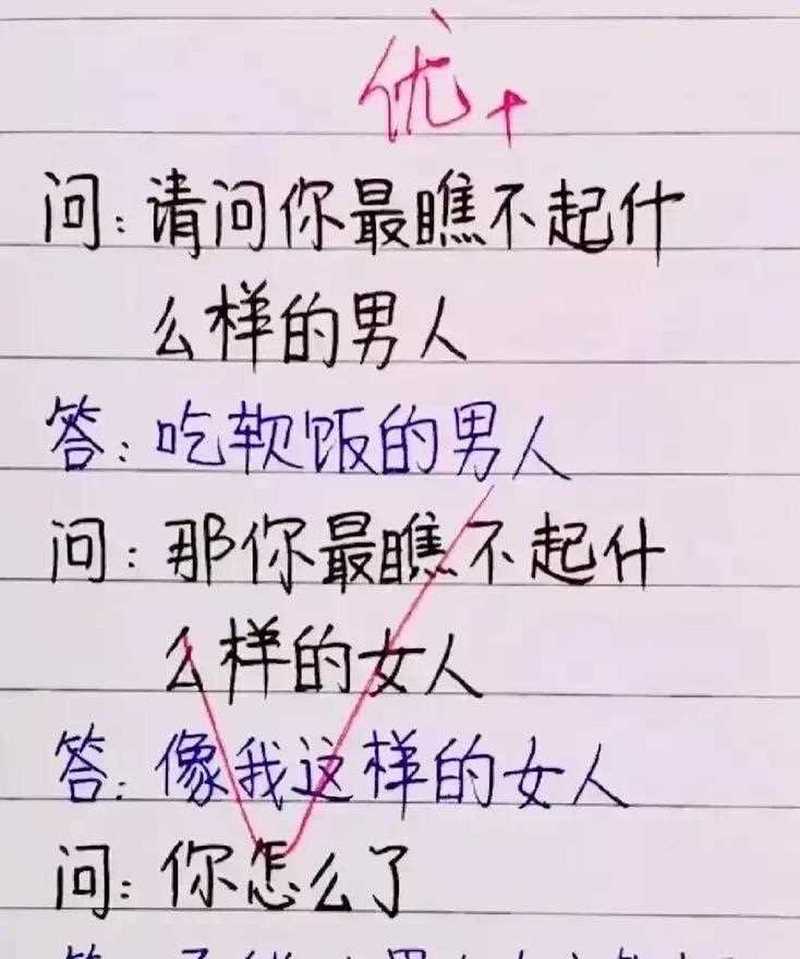 优+
问:请问你最瞧不起什
么样的男人
答:吃软饭的男人
问:那你最瞧不起什
么样的女人
答:像我这样的女人
问:你怎么了